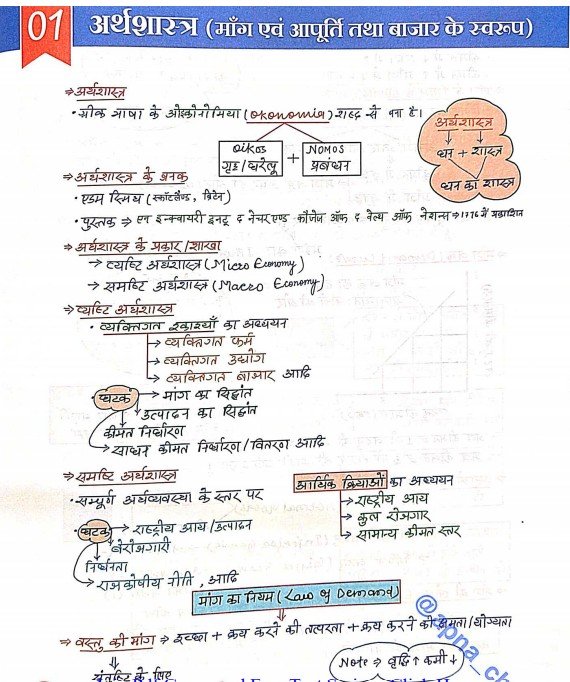 01 अर्थशास्त्र (माँग एवं आपूर्ति तथा बाजार के स्वरूप)
⇒ अर्थशास्त्र
• ग्रीक भाषा के ओइकोनोमिया (okonomia) शब्द से बना है।
अर्थशास्त्र
धन + शास्त्र
धन का शास्त्र
OIKOS गृह/घरेलू + NOMOS प्रबंधन
⇒ अर्थशास्त्र के जनक
• एडम स्मिथ (स्कॉटलैण्ड, ब्रिटेन)
• पुस्तक ⇒ एन इन्क्वायरी इनटू द नेचर एण्ड कॉजेज ऑफ द वेल्थ ऑफ नेशन्स ⇒ 1776 में प्रकाशित
⇒ अर्थशास्त्र के प्रकार/शाखा
→ व्यष्टि अर्थशास्त्र (Micro Economy)
→ समष्टि अर्थशास्त्र (Macro Economy)
⇒ व्यष्टि अर्थशास्त्र
• व्यक्तिगत इकाइयों का अध्ययन
→ व्यक्तिगत फर्म
→ व्यक्तिगत उद्योग
→ व्यक्तिगत बाजार आदि
घटक → मांग का सिद्धांत
उत्पादन का सिद्धांत
कीमत निर्धारण
→ साधन कीमत निर्धारण/वितरण आदि
⇒ समष्टि अर्थशास्त्र
• सम्पूर्ण अर्थव्यवस्था के स्तर पर
आर्थिक क्रियाओं का अध्ययन
→ राष्ट्रीय आय
→ कुल रोजगार
→ सामान्य कीमत स्तर
• घटक → राष्ट्रीय आय/उत्पादन
बेरोजगारी
निर्धनता
→ राजकोषीय नीति, आदि
मांग का नियम (Law of Demand)
⇒ वस्तु की मांग ⇒ इच्छा + क्रय करने की तत्परता + क्रय करने की क्षमता/योग्यता
Note ⇒ वृद्धि ↑ कमी ↓
@apna_ch